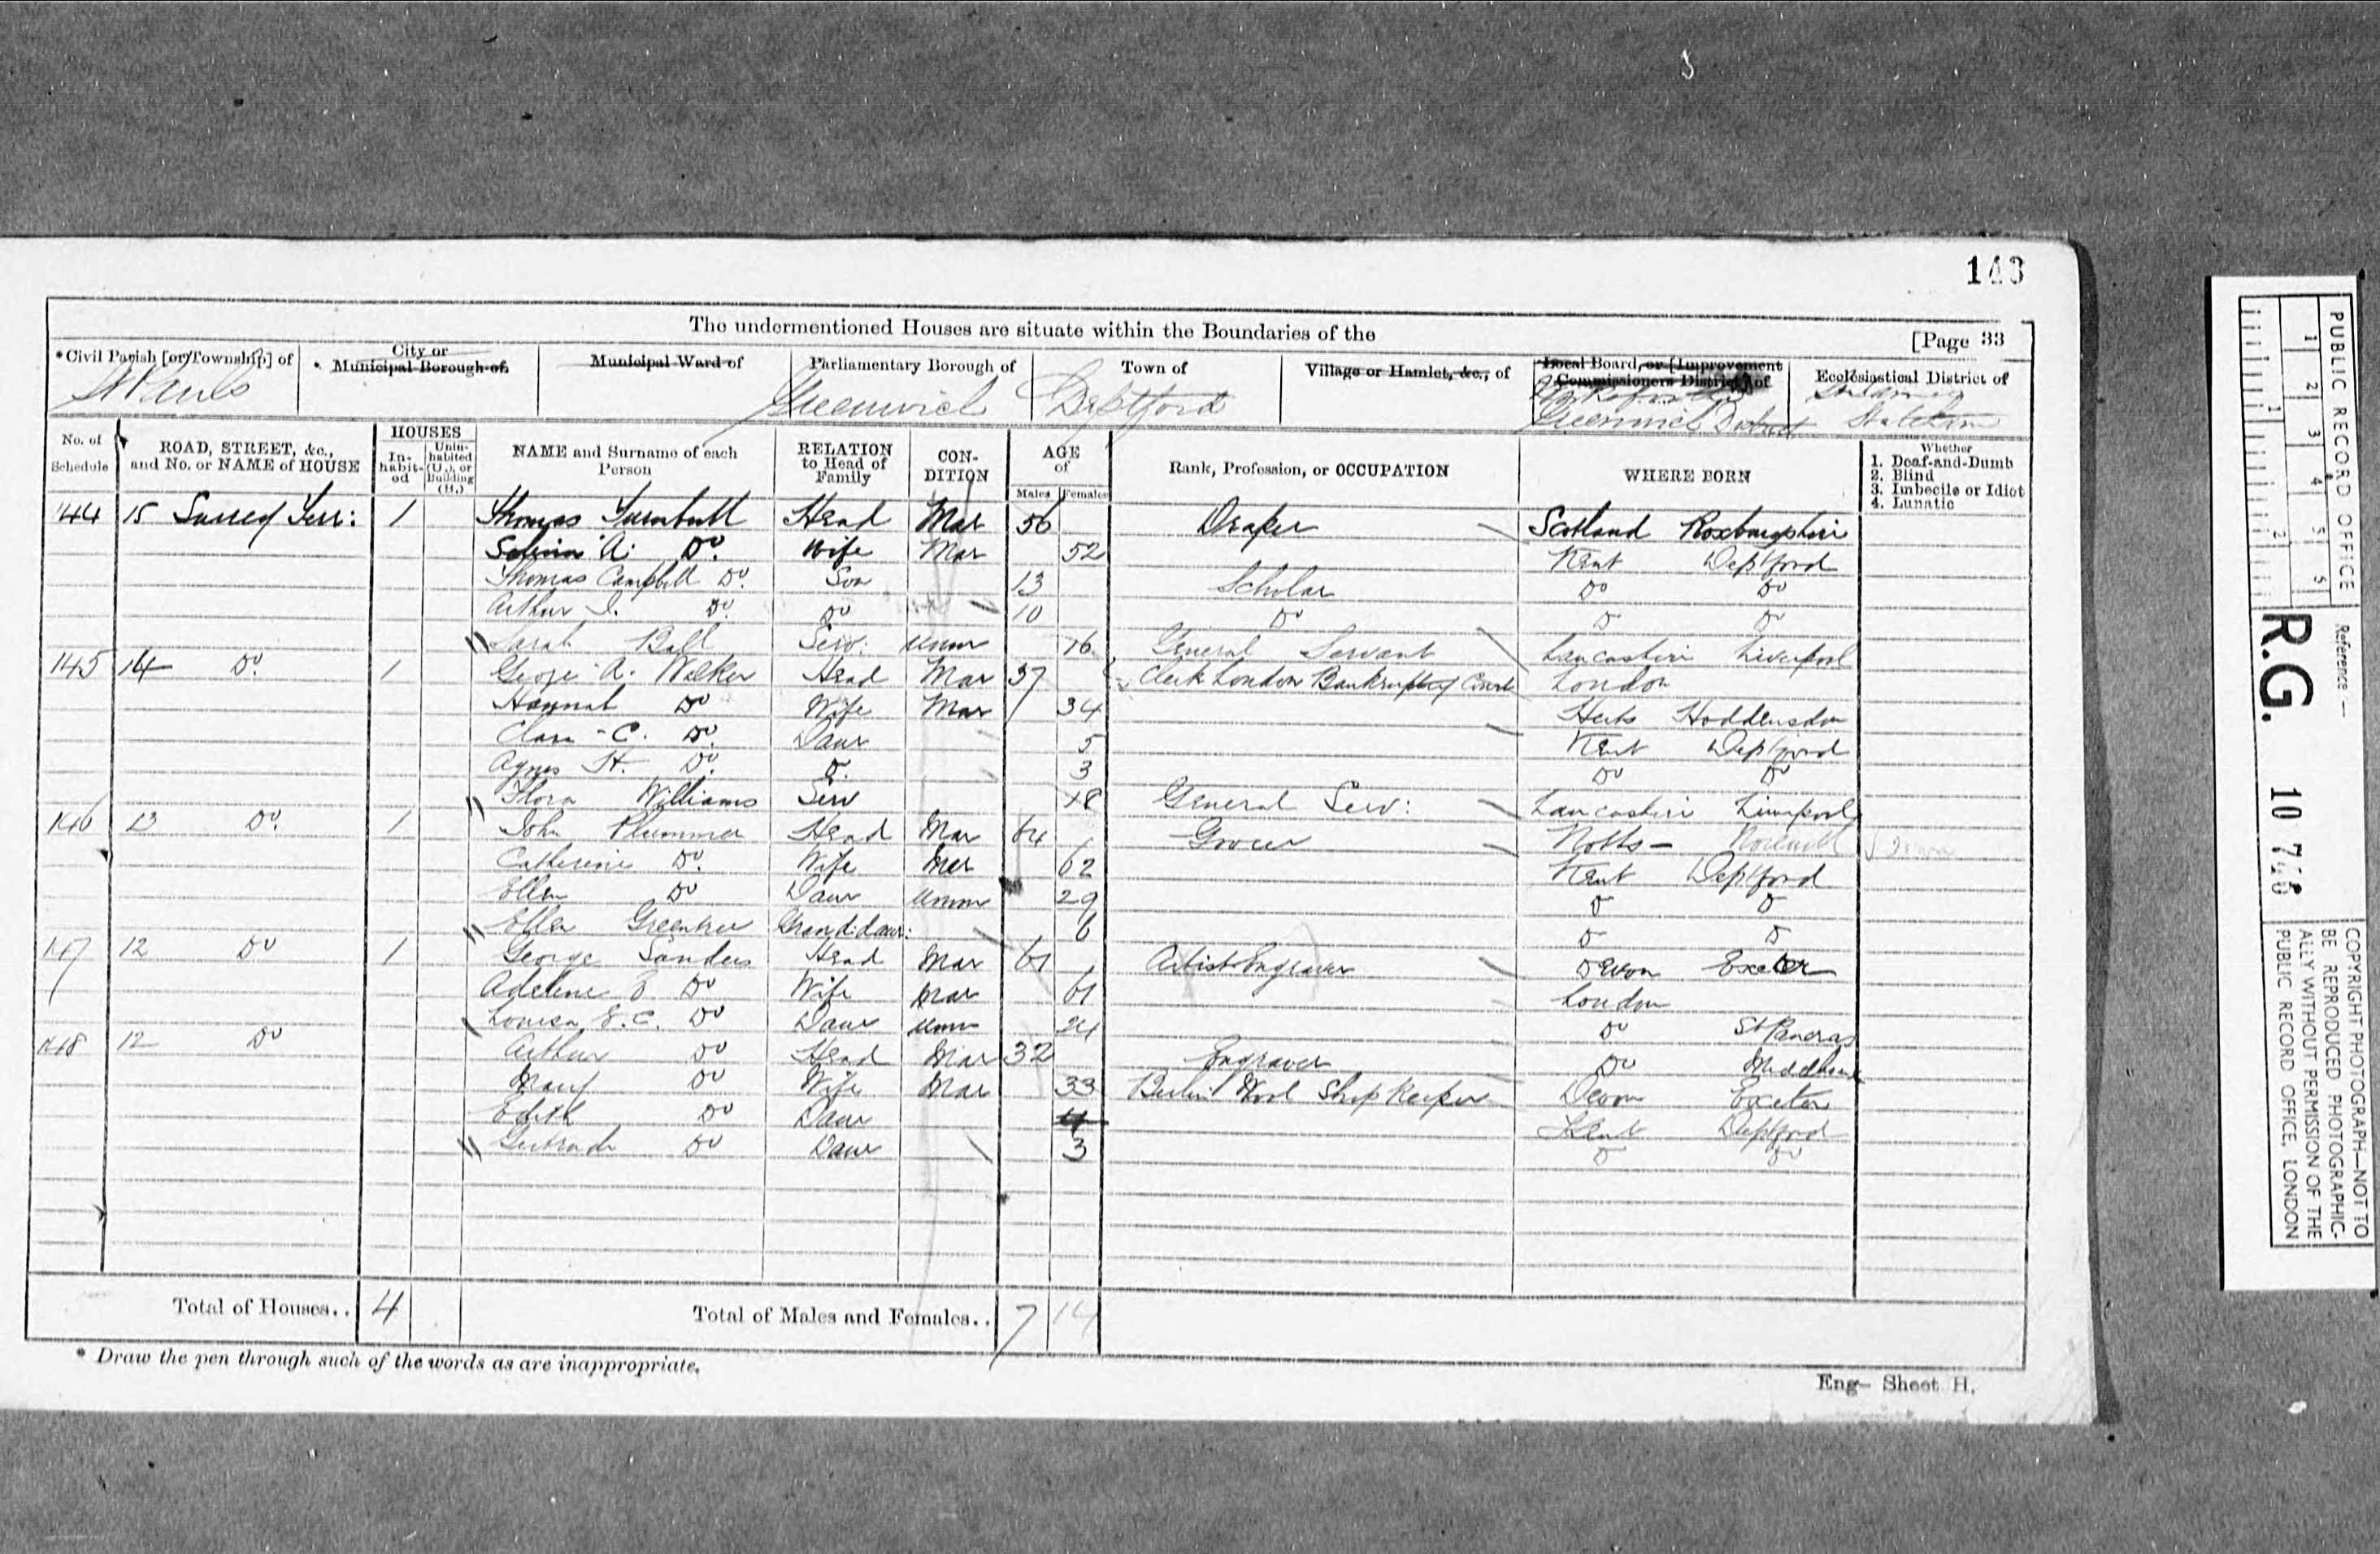 143
The undermentioned Houses are situate within the Boundaries of the
[Page 33
*Civil Parish [or Township] of
City or Municipal Borough of
Municipal Ward of
Parliamentary Borough of
Town of
Village or Hamlet, &c., of
Local Board, or [Improvement Commissioners District] of
Ecclesiastical District of
St Pauls
Greenwich
Deptford
Greenwich District
No. of Schedule
ROAD, STREET, &c., and No. or NAME of HOUSE
HOUSES
In-habit-ed
Unin-habited (U.), or Building (B.)
NAME and Surname of each Person
RELATION to Head of Family
CON-DITION
AGE of
Males
Females
Rank, Profession, or OCCUPATION
WHERE BORN
Whether
1. Deaf-and-Dumb
2. Blind
3. Imbecile or Idiot
4. Lunatic
144 15 Surrey Terr: 1 Thomas Turnbull Head Mar 56 Draper Scotland Roxburghshire
A. Do. Wife Mar 52 Kent Deptford
Thomas Campbell Do. Son 13 Scholar Do Do
Arthur Do. Do 10 Do Do Do
Sarah Ball Serv: Unm 16 General Servant Lancashire Liverpool
145 14 Do. 1 George A. Walker Head Mar 37 Clerk London Bankruptcy Court London
Hannah Do Wife Mar 34 Herts Hoddensdon
Clara C. Do. Daur 5 Kent Deptford
Agnes H. Do. Do. 3 Do Do
Flora Williams Serv 18 General Serv: Lancashire Liverpool
146 13 Do. 1 John Plummer Head Mar 64 Grocer Notts
Catherine Do. Wife Mar 62 Kent Deptford
Ellen Do Daur Unm 29 Do Do
Ellen Greentree Grand.daur: 6 Do Do
147 12 Do 1 George Sanders Head Mar 61 Artist Engraver Devon Exeter
Adelene E Do Wife Mar 61 London
Louisa E.C. Do Daur Unm 24 Do St Pancras
148 12 Do Arthur Do Head Mar 32 Engraver Do
Mary Do Wife Mar 33 Berlin Wool Shop Keeper Devon Exeter
Edith Do Daur 4 Kent Deptford
Gertrude Do Daur 3 Do Do
Total of Houses.. 4
Total of Males and Females.. 7 14
* Draw the pen through such of the words as are inappropriate.
Eng— Sheet H.
PUBLIC RECORD OFFICE
1 2 3 4 5
1 2
Reference :—
R.G. 10
COPYRIGHT PHOTOGRAPH—NOT TO
BE REPRODUCED PHOTOGRAPHIC-
ALLY WITHOUT PERMISSION OF THE
PUBLIC RECORD OFFICE, LONDON